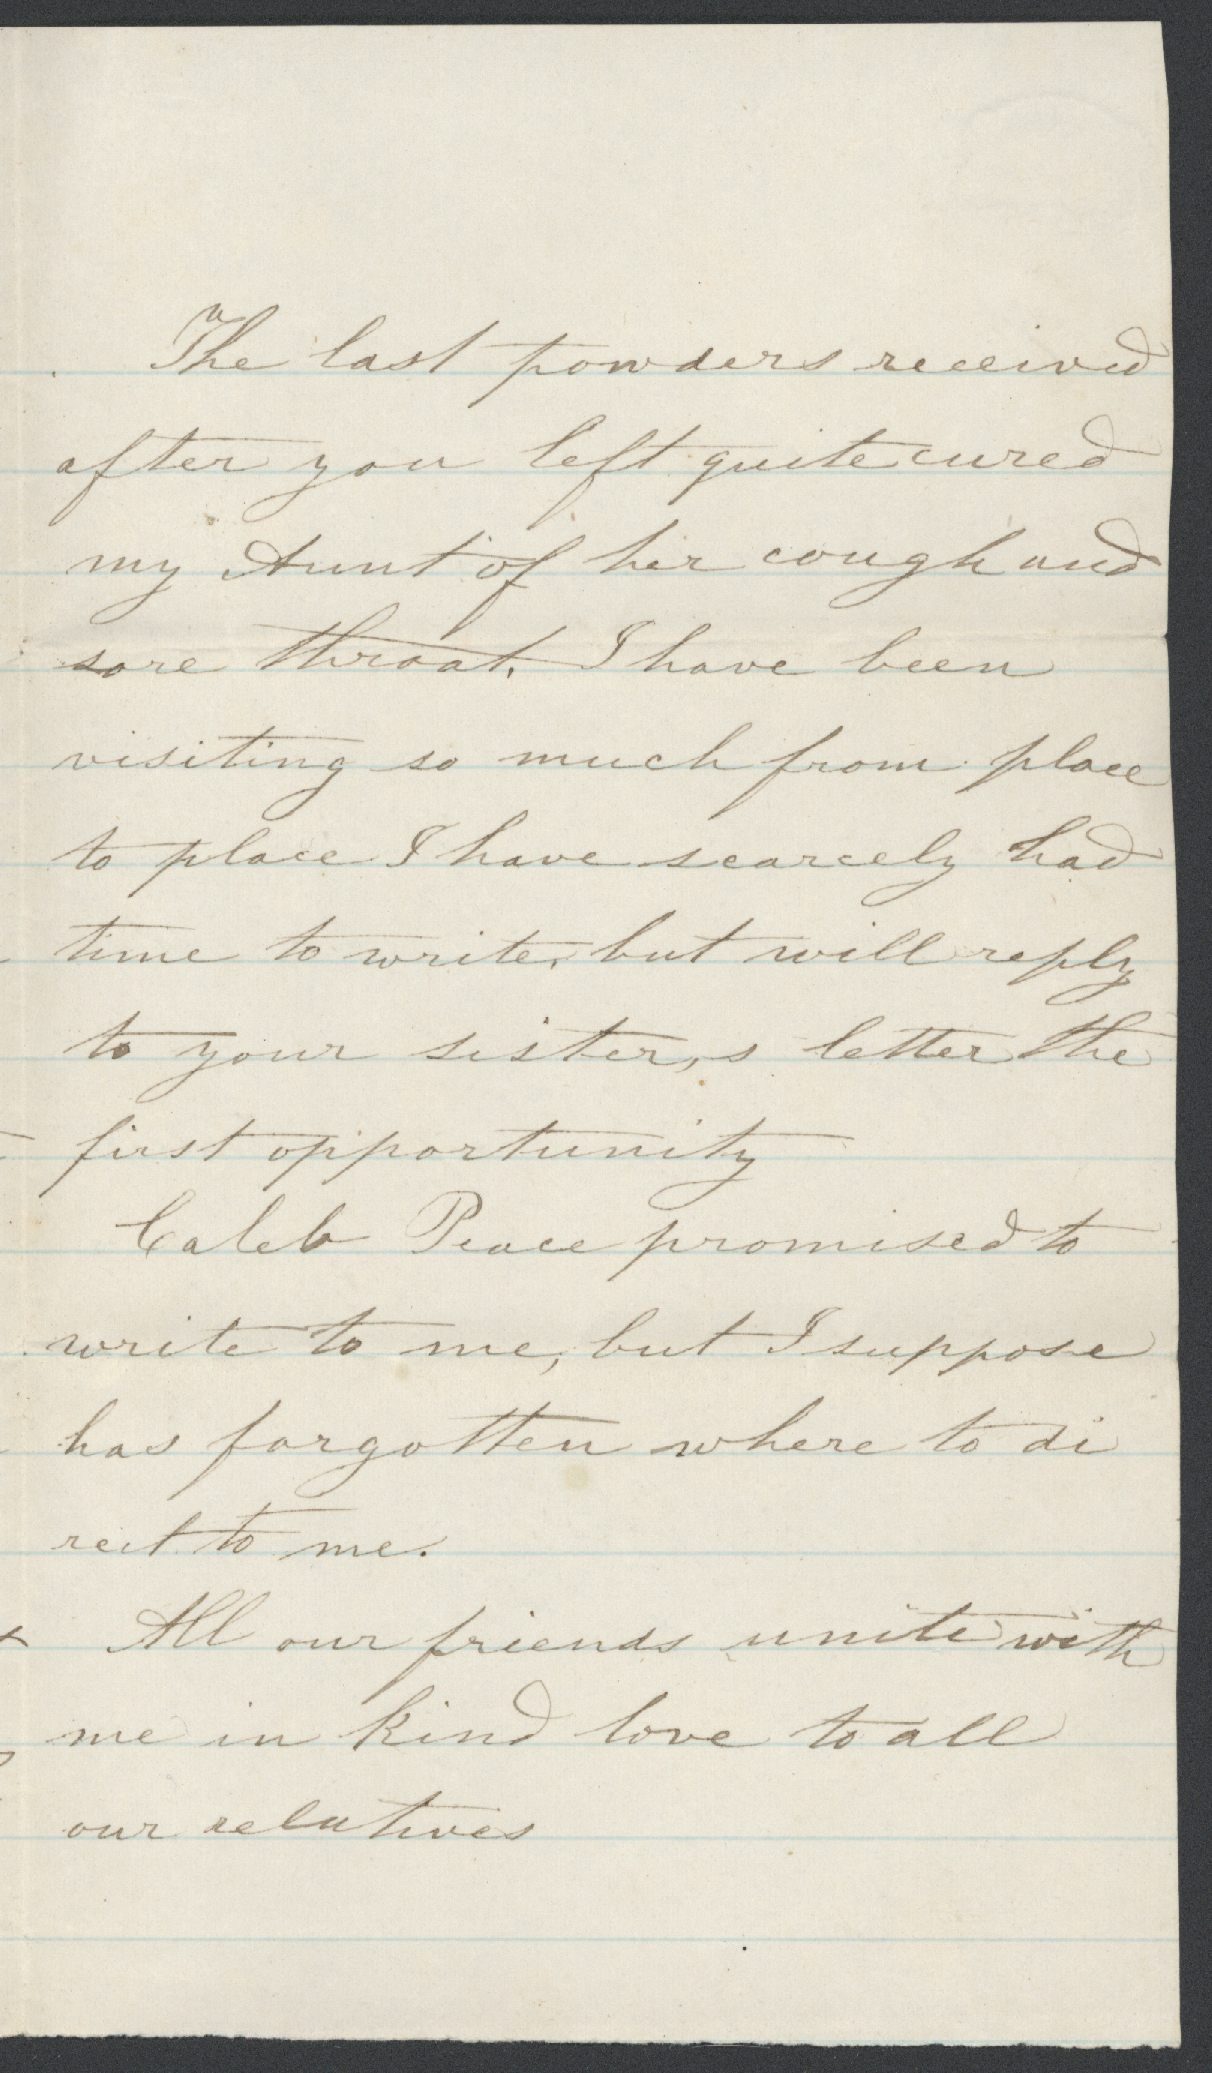 The last powders received
after you left quite cured
my Aunt of her cough and
sore throat. I have been
visiting so much from place
to place I have scarcely had
time to write, but will reply
to your sister,s letter the
first opportunity
Caleb Peace promised to
write to me, but I suppose
has forgotten where to di
rect to me.
All our friends unite with
me in kind love to all
our relatives